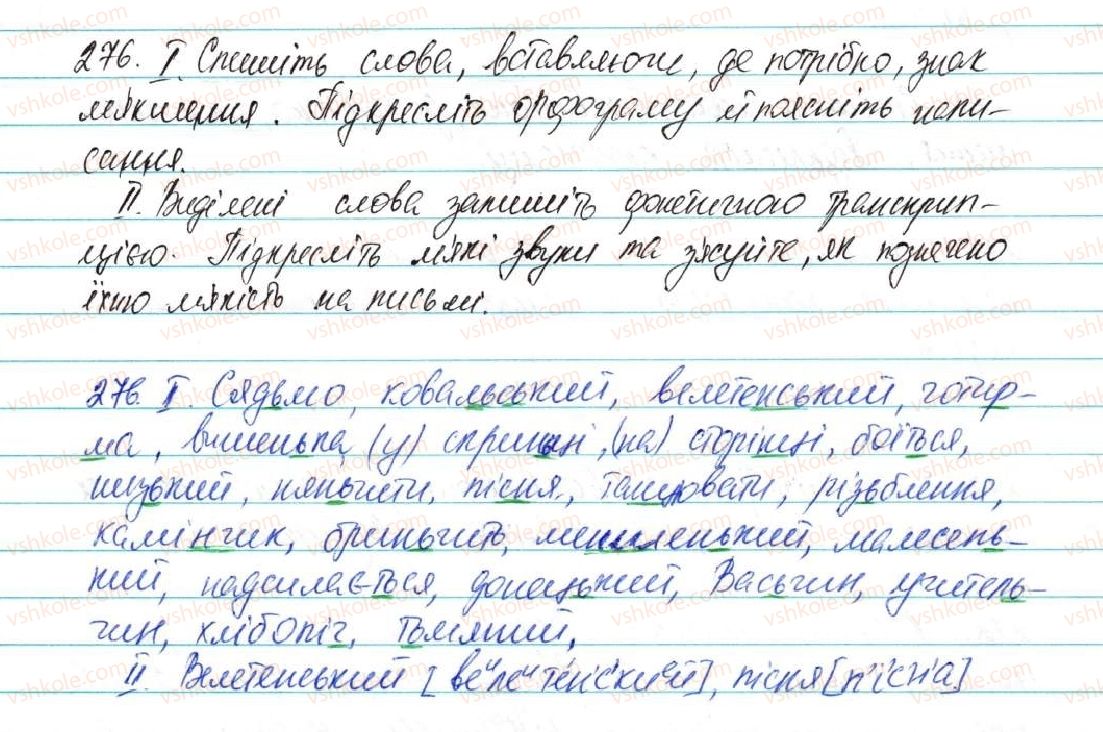 276. I. Спишіть слова, вставляючи, де потрібно, знак
м'якшення. Підкресліть орфограму й поясніть напи-
сання.
II. Виділені слова запишіть фонетичною транскрип-
цією. Підкресліть м'які звуки та з'ясуйте, як позначено
їхню м'якість на письмі.
276. I. Сядьмо, ковальський, велетенський, чотир-
ма, вишенька, (у) спринці, (на) сторінці, боїться,
низький, няньчити, пісня, танцювати, різьблення,
камінчик, бриньчить, меншенький, малесень-
кий, надсилається, донецький, Васьчин, учитель-
чин, хлібопіч, тьмяний,
II. Велетенський [веилеитен'с'киий], пісня [п'існ'а]